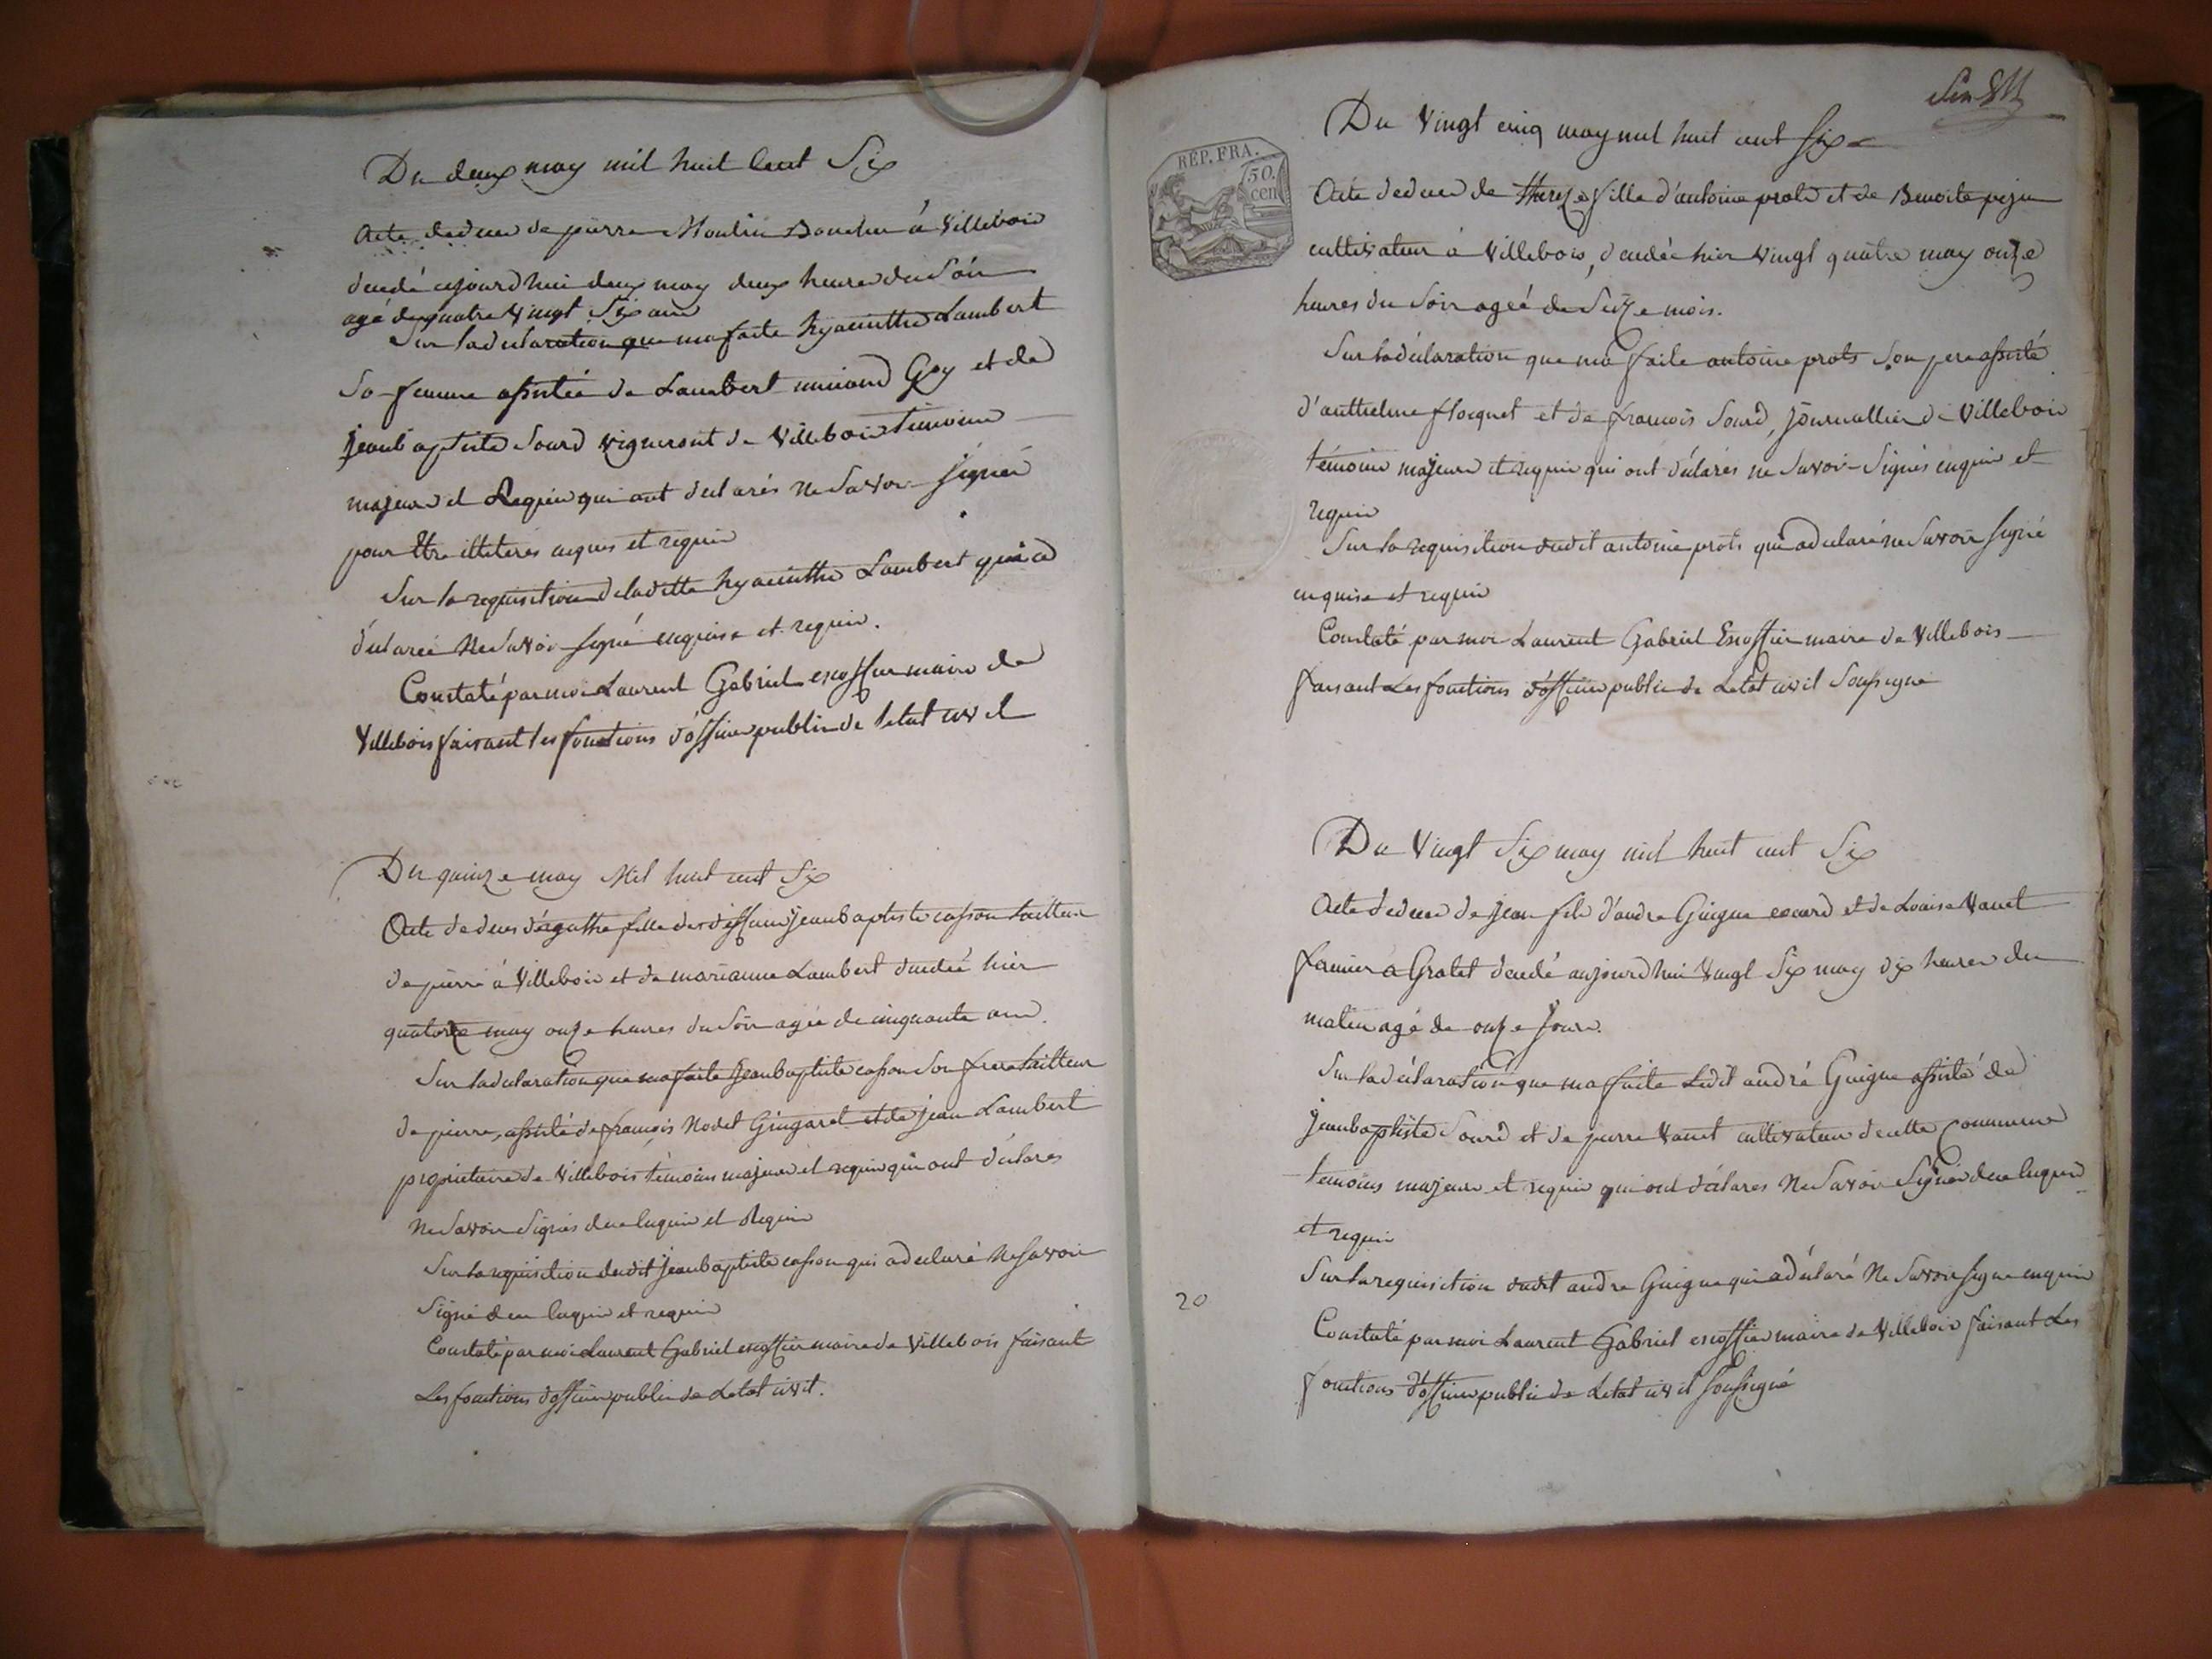 Du deux may mil huit Cent Six
Acte de deces de pierre Moulin Boucher à Villebois
decedé aujourdhui deux may deux heures du Soir
agé de quatre Vingt Six ans
Sur la declaration que ma faite hyacinthe Lambert
Sa femme assistée de Lambert Guy et de
jeanbaptiste Sourd vigneront de Villebois temoins
majeurs et Requis qui ont declarés ne Savoir Signés
pour Etre illiteres enquis et requis
Sur la requisition de la ditte hyacinthe Lambert qui a
declaree Ne Savoir Signé enquise et requis.
Constaté par moi Laurent Gabriel escoffier maire de
Villebois faisant les fonctions d'officier public de letat civil
Du quinze may Mil huit cent Six
Acte de deces d'agathe fille de deffunt jeanbaptiste casson tailleur
de pierre à Villebois et de marianne Lambert decedée hier
quatorze may onze heures du Soir agée de cinquante ans.
Sur la declaration que ma faite jeanbaptiste casson Son frere tailleur
de pierre, assisté de françois Nodet Gingaret et de jean Lambert
proprietaires de Villebois témoins majeurs et requis qui ont déclarés
Ne Savoir Signés de ce enquis et Requis
Sur la requisition dudit jeanbaptiste casson qui a declaré Ne Savoir
Signé de ce enquis et requis
Constaté par moi Laurent Gabriel escoffier maire de Villebois faisant
Les fonctions d'officier public de Letat civil.
Du Vingt cinq may mil huit cent Six
RÉP. FRA.
50. cen
Acte de deces de Thereze fille d'antoine prots et de Benoite pejus
cultivateur à Villebois, decedée hier Vingt quatre may onze
heures du Soir ageé de Seize mois.
Sur la déclaration que ma faite antoine prots Son pere assisté
d'anthelme floquet et de françois Sourd, journallier de Villebois
témoins majeurs et requis qui ont déclarés ne Savoir Signés enquis et
requis
Sur la requisition dudit antoine prots qui a declaré ne Savoir signé
enquise et requis
Constaté par moi Laurent Gabriel Escoffier maire de Villebois
faisant Les fonctions d'officier public de Letat civil Soussigné
Du Vingt Six may mil huit cent Six
Acte de deces de jean fils d'andre Guigue et de Louise Vanet
fermier a Grolet decedé aujourdhui Vingt Six may dix heures du
matin agé de onze jours.
Sur la déclaration que ma faite Ledit andré Guigue assisté de
jeanbaptiste Sourd et de pierre Vanet cultivateur de cette Commune
temoins majeurs et requis qui ont déclarés Ne Savoir Signer de ce enquis
et requis
Sur la requisition dudit andre Guigue qui a déclaré Ne Savoir Signe enquis
20
Constaté par moi Laurent Gabriel escoffier maire de Villebois faisant Les
fonctions d'officier public de Letat civil Soussigné